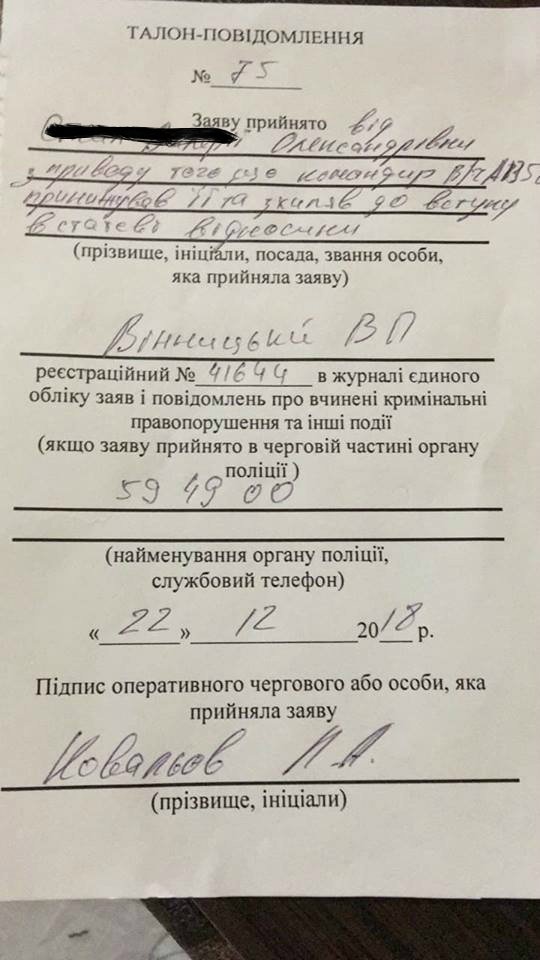 ТАЛОН-ПОВІДОМЛЕННЯ
№ 75
Заяву прийнято від
Олександрівни
з приводу того що командир в/ч
принижував її та схиляв до вступу
в статеві відносини
(прізвище, ініціали, посада, звання особи,
яка прийняла заяву)
Вінницький ВП
реєстраційний № 41644 в журналі єдиного
обліку заяв і повідомлень про вчинені кримінальні
правопорушення та інші події
(якщо заяву прийнято в черговій частині органу
поліції )
59 49 00
(найменування органу поліції,
службовий телефон)
« 22 » 12 2018 р.
Підпис оперативного чергового або особи, яка
прийняла заяву
Ковальов П.А.
(прізвище, ініціали)